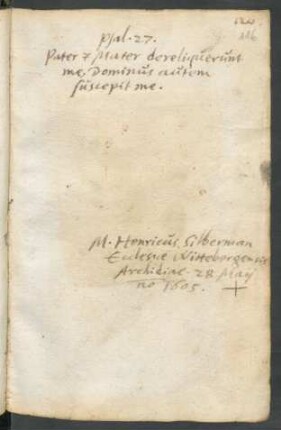 116
psal. 27.
Pater & Mater dereliquerunt
me. Dominus autem
suscepit me.
M. Henricus Silberman
Ecclesiae Wittebergensis
Archidiac. 28 Maij
no 1605.